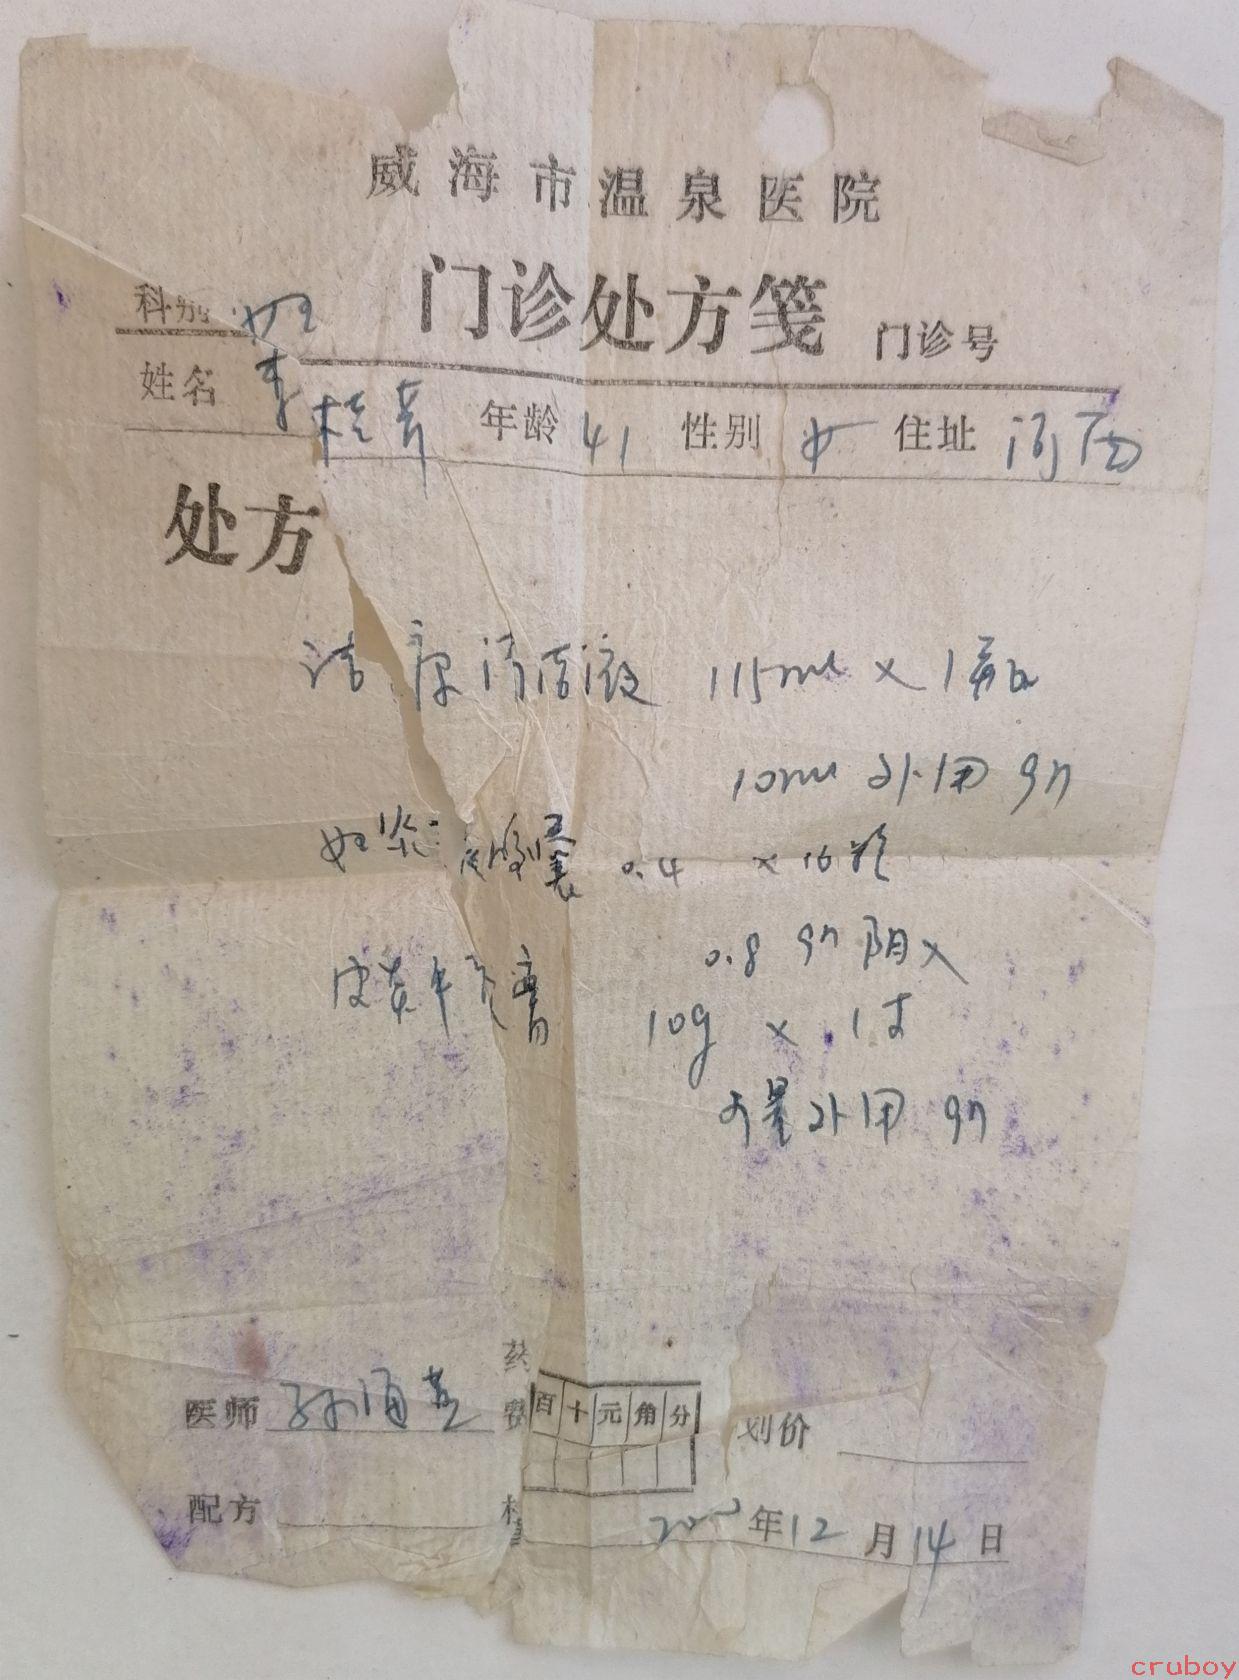 威海市温泉医院
门诊处方笺
科别 妇 门诊号
姓名 李桂芳 年龄 41 性别 女 住址 河西
处方
洁 康清洁液 115ml × 1瓶
10ml 外用 qn
妇炎 胶囊 0.4 × 16粒
0.8 qn 阴入
皮炎平 膏 10g × 1支
外用 qn
医师 孙海 药费 百 十 元 角 分 划价
配方 年12月14日
cruboy